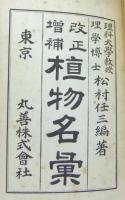 理科大學教授
理學博士 松村任三編著
改正
增補
植物名彙
東京
丸善株式會社